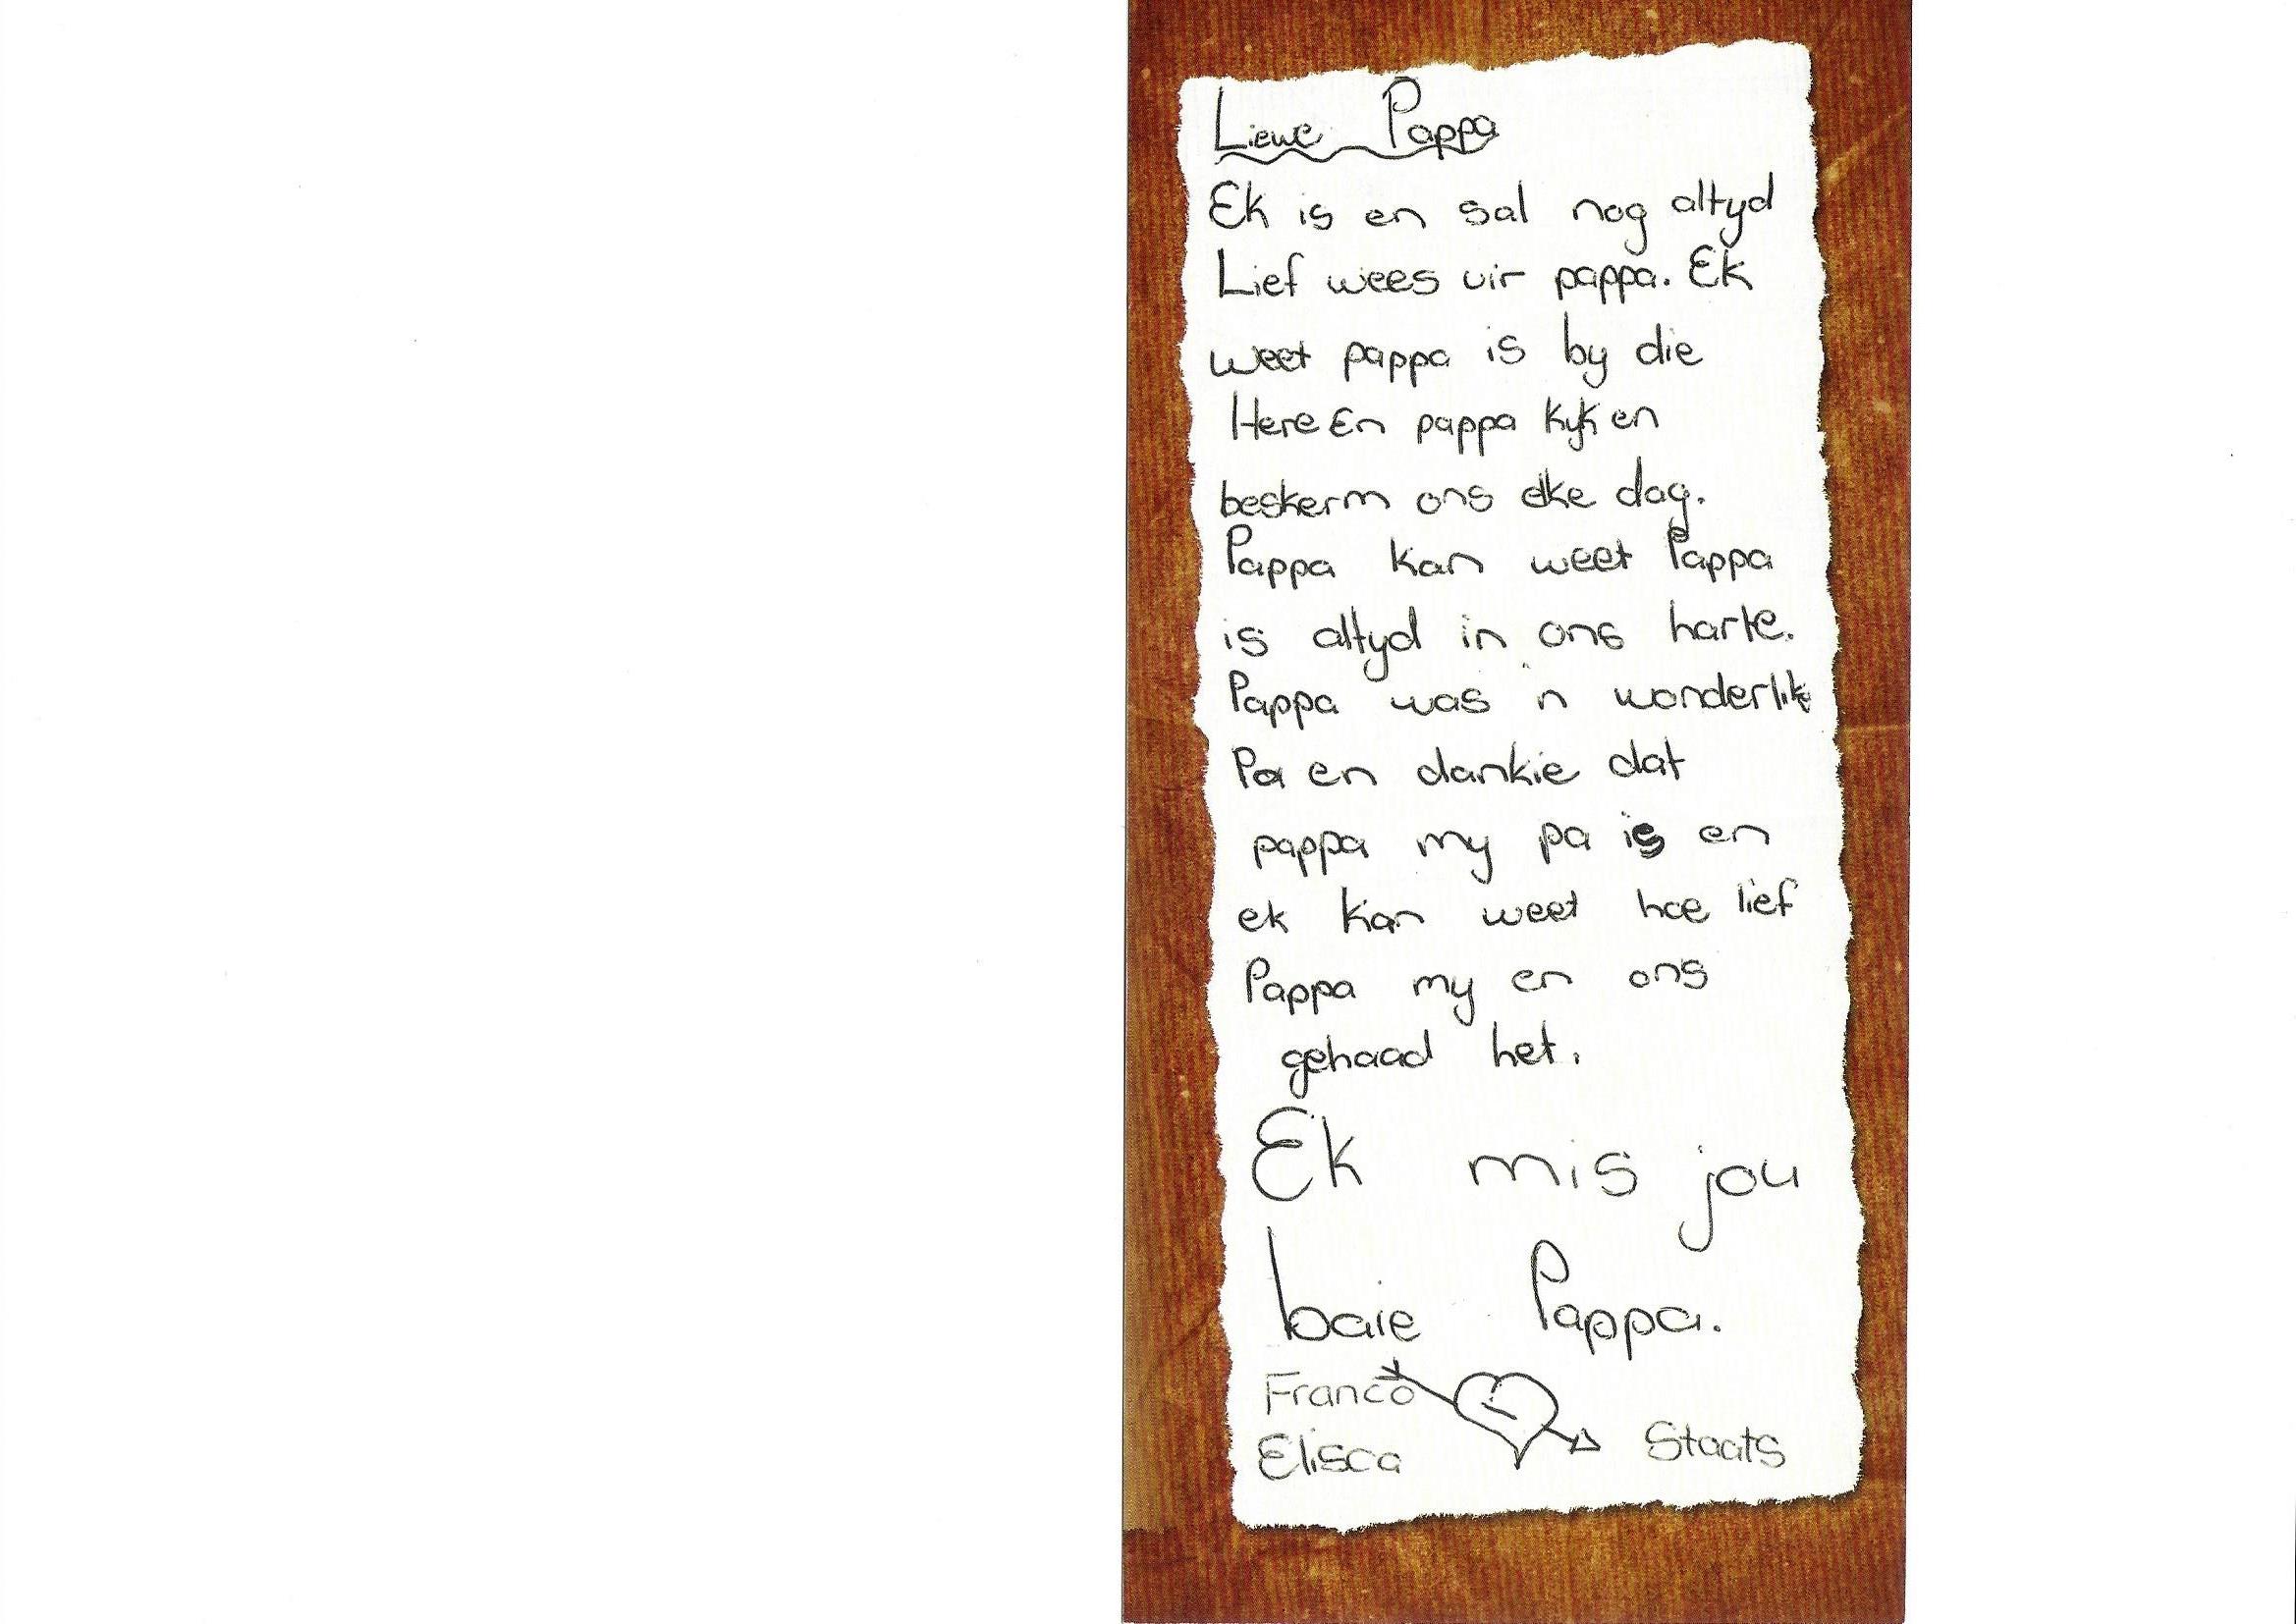 Liewe Pappa
Ek is en sal nog altyd
Lief wees vir pappa. Ek
weet pappa is by die
Here En pappa kyk en
beskerm ons elke dag.
Pappa kan weet Pappa
is altyd in ons harte.
Pappa was 'n wonderlik
Pa en dankie dat
pappa my pa is en
ek kan weet hoe lief
Pappa my en ons
gehaad het.
Ek mis jou
baie Pappa.
Franco
Elisca Staats